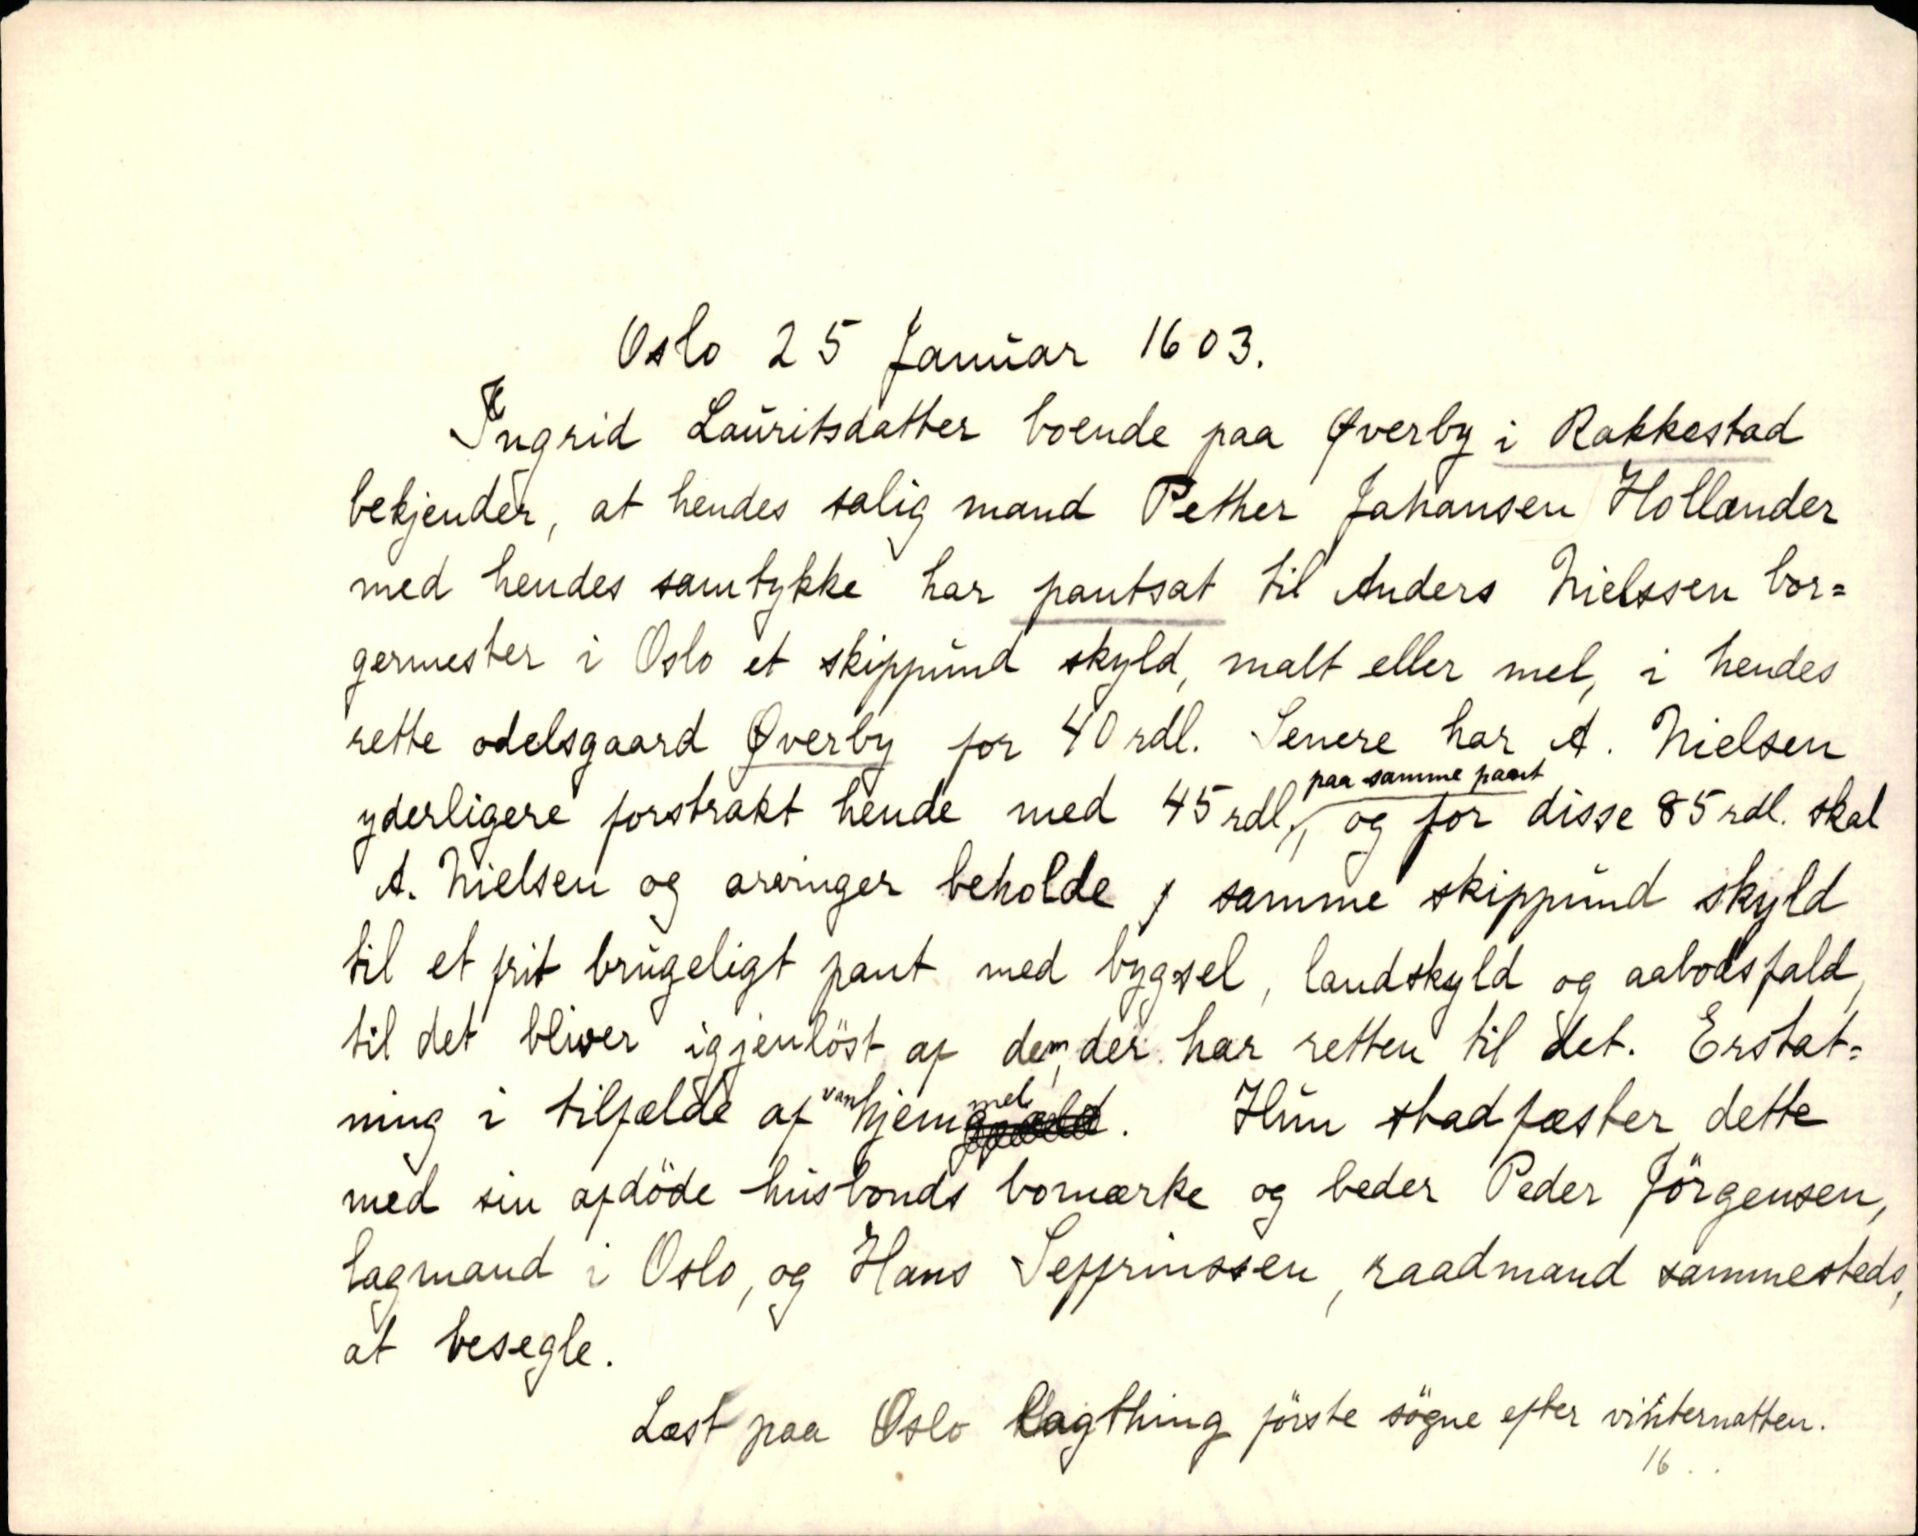 Oslo 25 Januar 1603.
Ingrid Lauritsdatter boende paa Øverby i Rakkestad
bekjender, at hendes salig mand Pether Jahansen Hollænder
med hendes samtykke har pantsat til Anders Nielssen bor=
germester i Oslo et skippund skyld, malt eller mel, i hendes
rette odelsgaard Øverby for 40 rdl. Senere har A. Nielsen
yderligere forstrakt hende med 45 rdl. paa samme pant, og for disse 85 rdl. skal
A. Nielsen og arvinger beholde samme skippund skyld
til et frit brugeligt pant med bygsel, landskyld og aabodsfald,
til det bliver igjenlöst af dem, der har retten til det. Erstat=
ning i tilfælde af vanhjemmel. Hun stadfæster dette
med sin afdöde husbonds bomærke og beder Peder Jörgensen,
lagmand i Oslo, og Hans Seffrinssen, raadmand sammesteds,
at besegle.
Læst paa Oslo lagthing förste sögne efter vinternatten.
16 . .